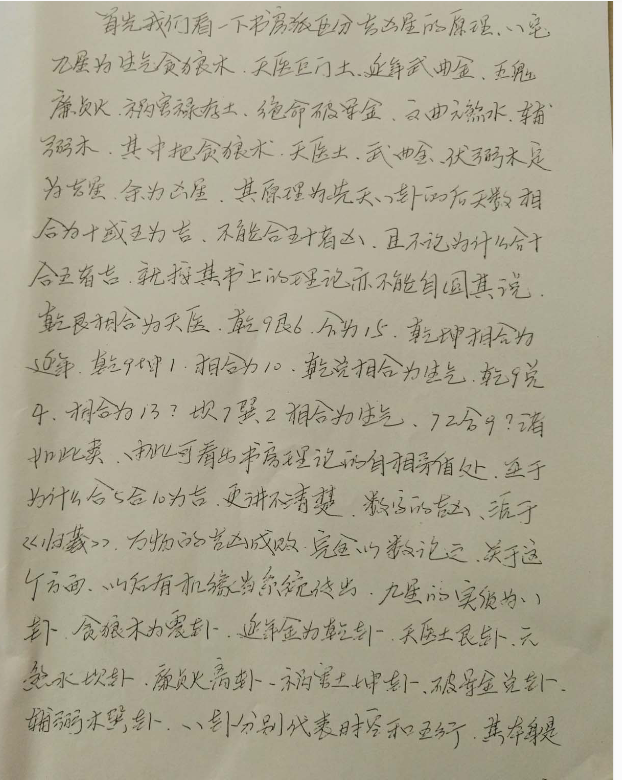 首先我们看一下书房派区分吉凶星的原理、八宅
九星为生气贪狼木、天医巨门土、延年武曲金、五鬼
廉贞火、祸害禄存土、绝命破军金、文曲六煞水、辅
弼木、其中把贪狼木、天医土、武曲金、伏弼木定
为吉星、余为凶星、其原理为先天八卦的后天数相
合为十或五为吉、不能合五十者凶、且不论为什么合十
合五者吉、就按其书上的理论亦不能自圆其说、
乾艮相合为天医、乾9艮6、合为15、乾坤相合为
延年、乾9坤1、相合为10、乾兑相合为生气、乾9兑
4、相合为13？坎7巽2相合为生气、72合9？诸
如此类、由此可看出书房理论的自相矛盾处、至于
为什么合5合10为吉、更讲不清楚、数字的吉凶、源于
《归藏》、万物的吉凶成败、完全以数论定、关于这
个方面、以后有机缘当系统传出、九星的实质为八
卦、贪狼木为震卦、延年金为乾卦、天医土艮卦、六
煞水坎卦、廉贞火离卦、祸害土坤卦、破军金兑卦、
辅弼木巽卦、八卦分别代表时空和五行、其本身是